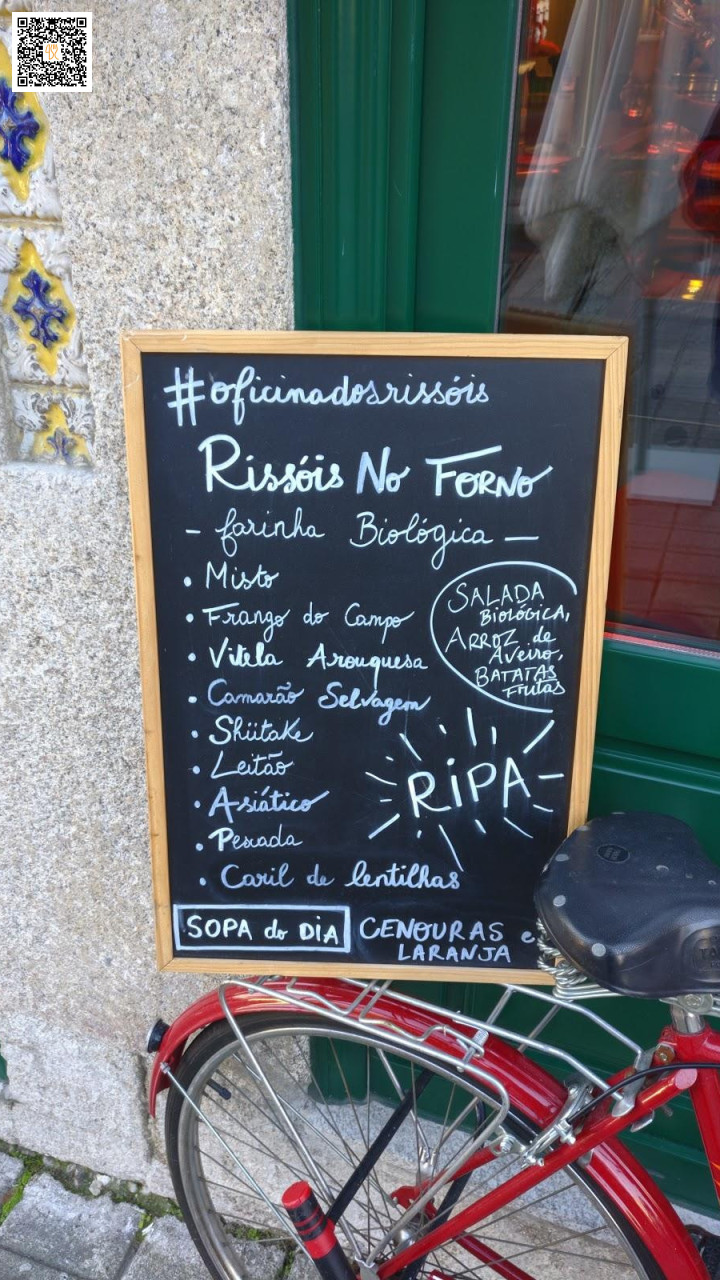 #oficinadosrissóis
Rissóis No FORNO
- farinha Biológica -
• Misto
• Frango do Campo
• Vitela Arouquesa
• Camarão Selvagem
• Shiitake
• Leitão
• Asiático
• Pescada
• Caril de lentilhas
SALADA
BIOLÓGICA,
ARROZ de
Aveiro,
BATATAS
Fritas
RIPA
SOPA do DIA
CENOURAS e
LARANJA